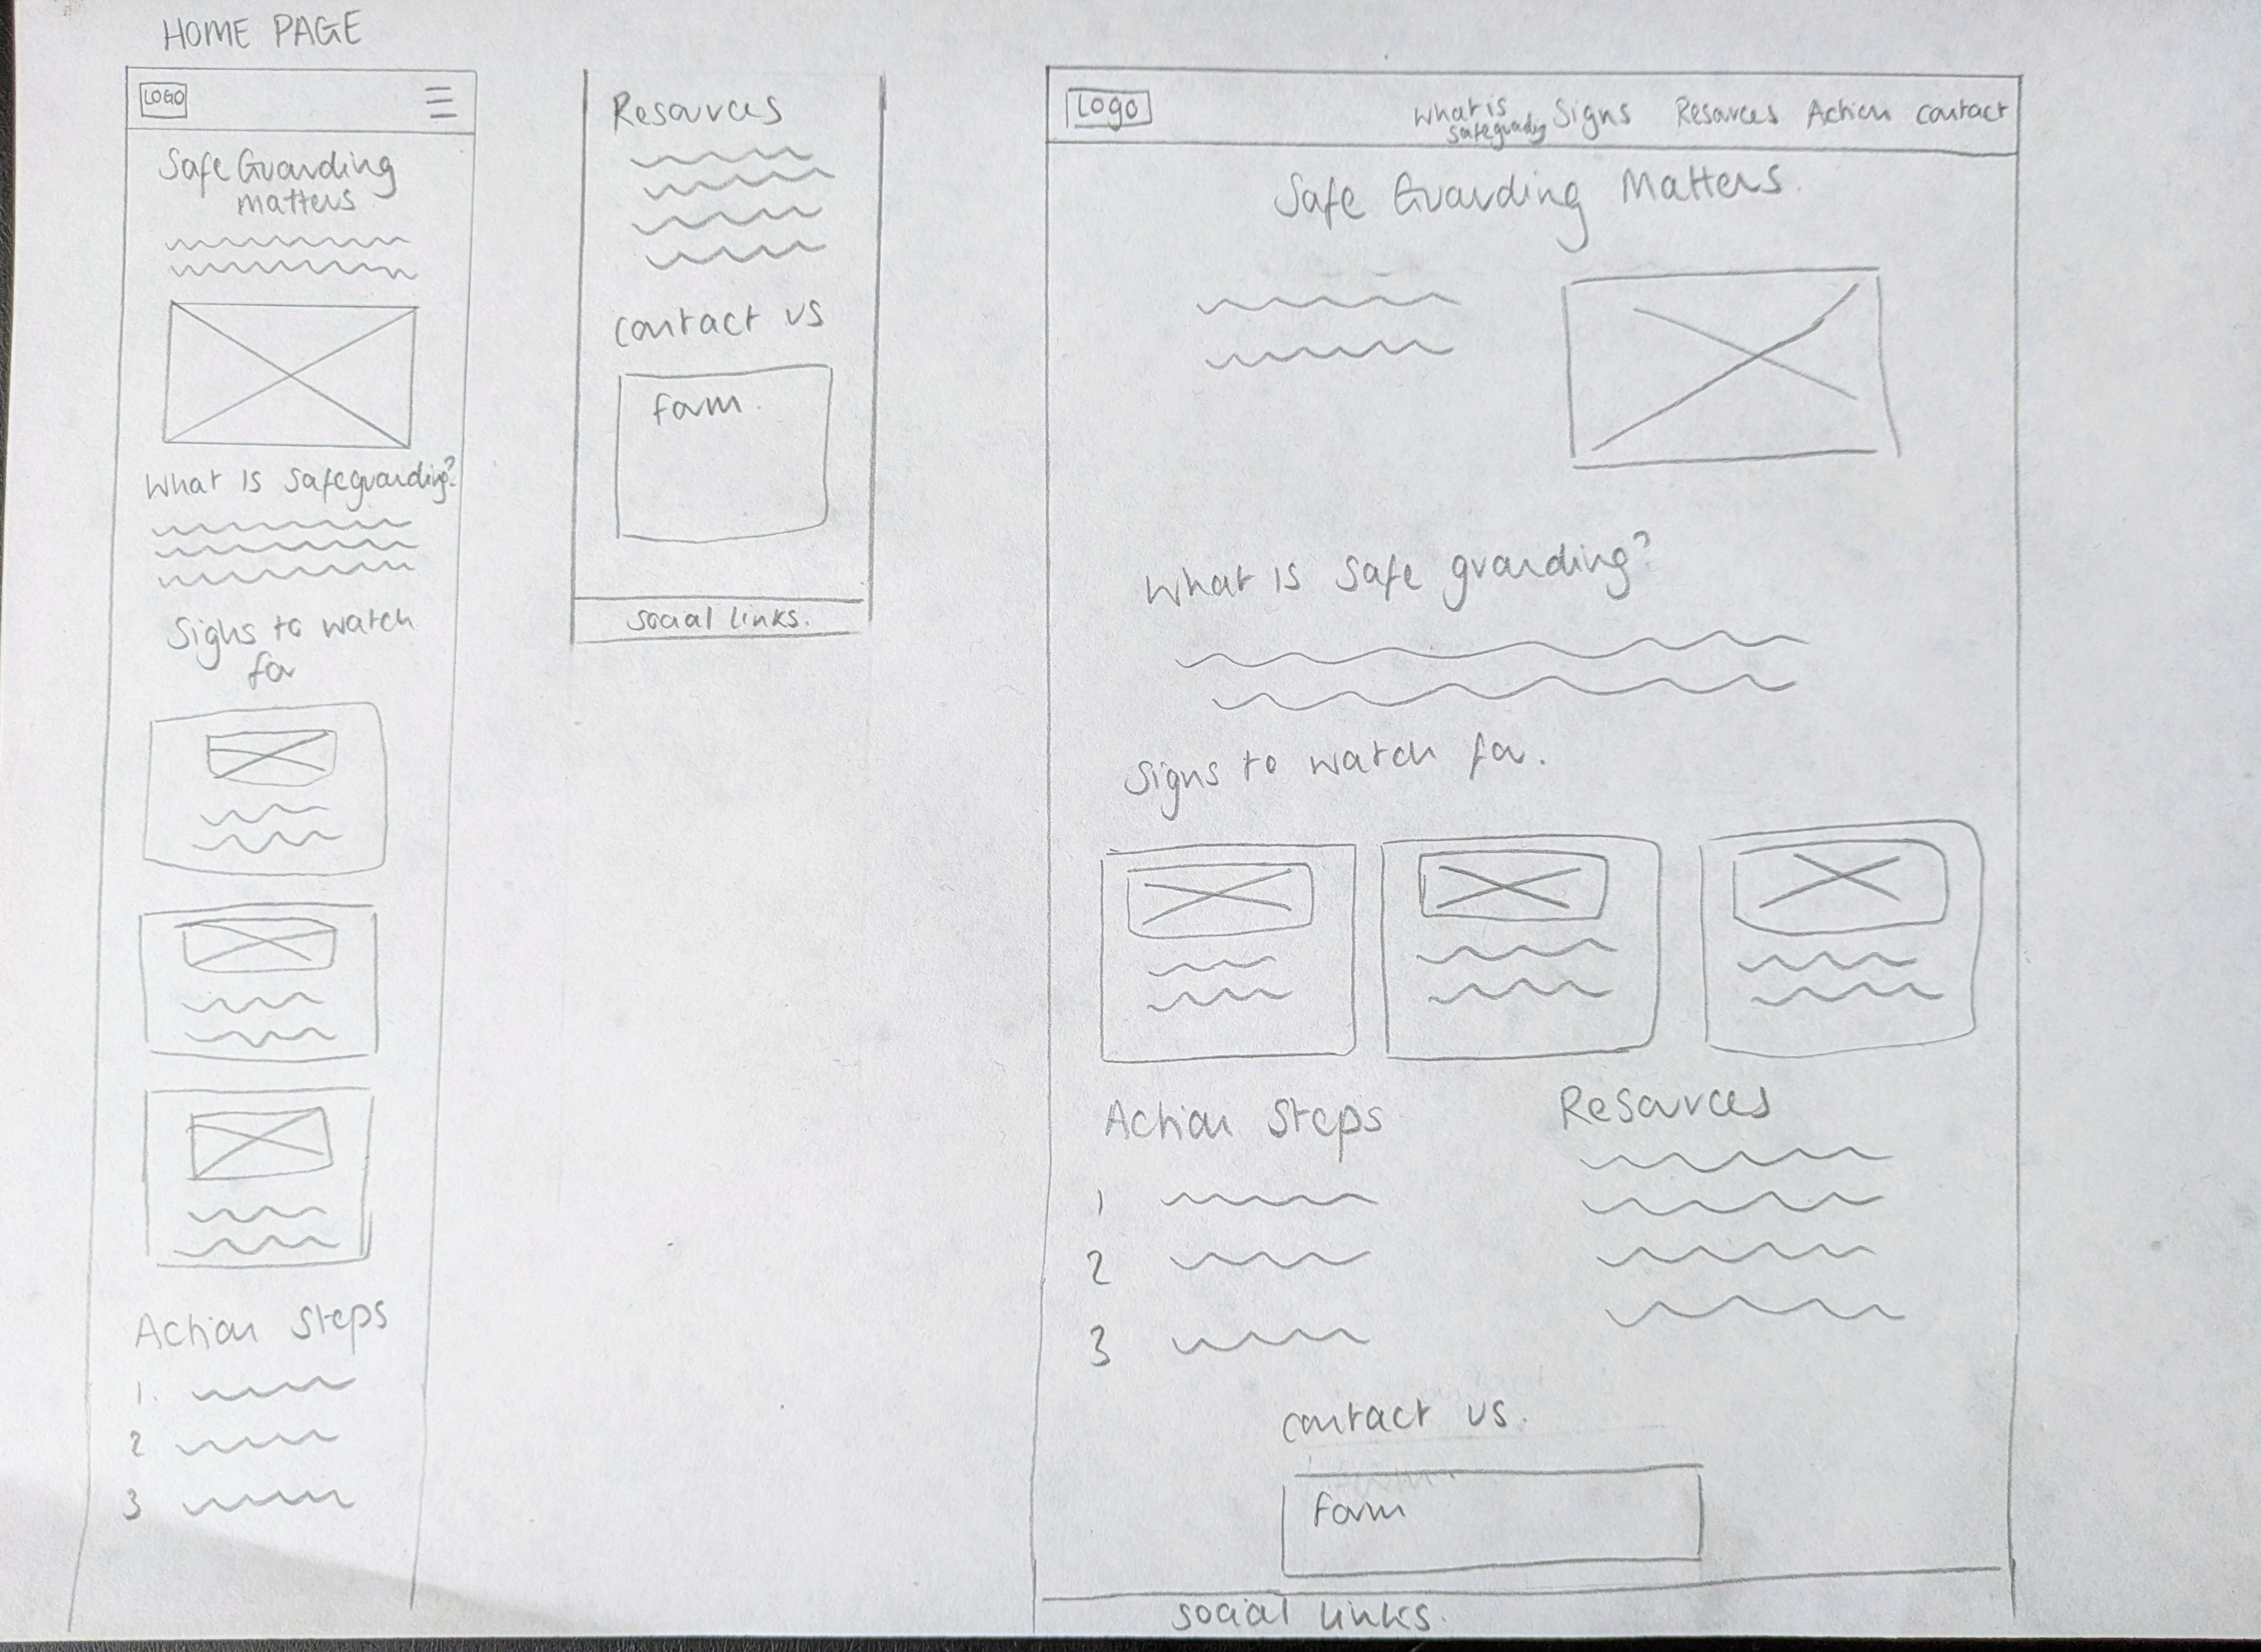 HOME PAGE
LOGO
Safe Guarding
matters
What is safeguarding?
Signs to watch
for
Action Steps
1.
2
3
Resources
contact us
form.
social links.
Logo
What is
safeguarding
Signs
Resources
Action
contact
Safe Guarding Matters.
What is safe guarding?
Signs to watch for.
Action Steps
1
2
3
Resources
contact us.
form
social links.